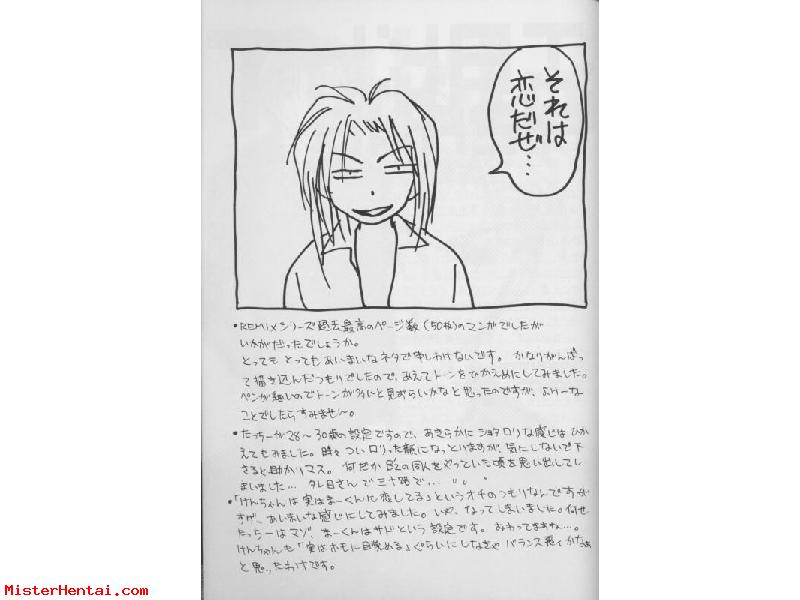 それは
恋だぜ…
・REMIXシリーズ過去最高のページ数(50枚)のマンガでしたが
いかがだったでしょうか。
とっても とってもあいまいなネタで申しわけないです。かなりがんばっ
て描き込んだつもりでしたので、あえてトーンをひかえめにしてみました。
ペンが強いのでトーンが多いと見づらいかなと思ったのですが、よけーな
ことでしたらすみませ〜。
・たっちーが28〜30歳の設定ですので、あきらかにショタロリな感じはひか
えてもみました。時々ついロリった顔になっとりますが、気にしないで下
さると助かりマス。何だかB'zの同人をやっていた頃を思い出してし
まいました… タレ目さんで三十路で…
・「けんちゃんは実はまーくんに恋してる」というオチのつもりなんですが
すが、あいまいな感じにしてみました。いや、なってしまいました。何せ
たっちーはマゾ、まーくんはサドという設定です。おわってますね…。
けんちゃんも「実はホモに目覚める」ぐらいにしなきゃ バランス悪くかなぁ
と思ったわけです。
MisterHentai.com